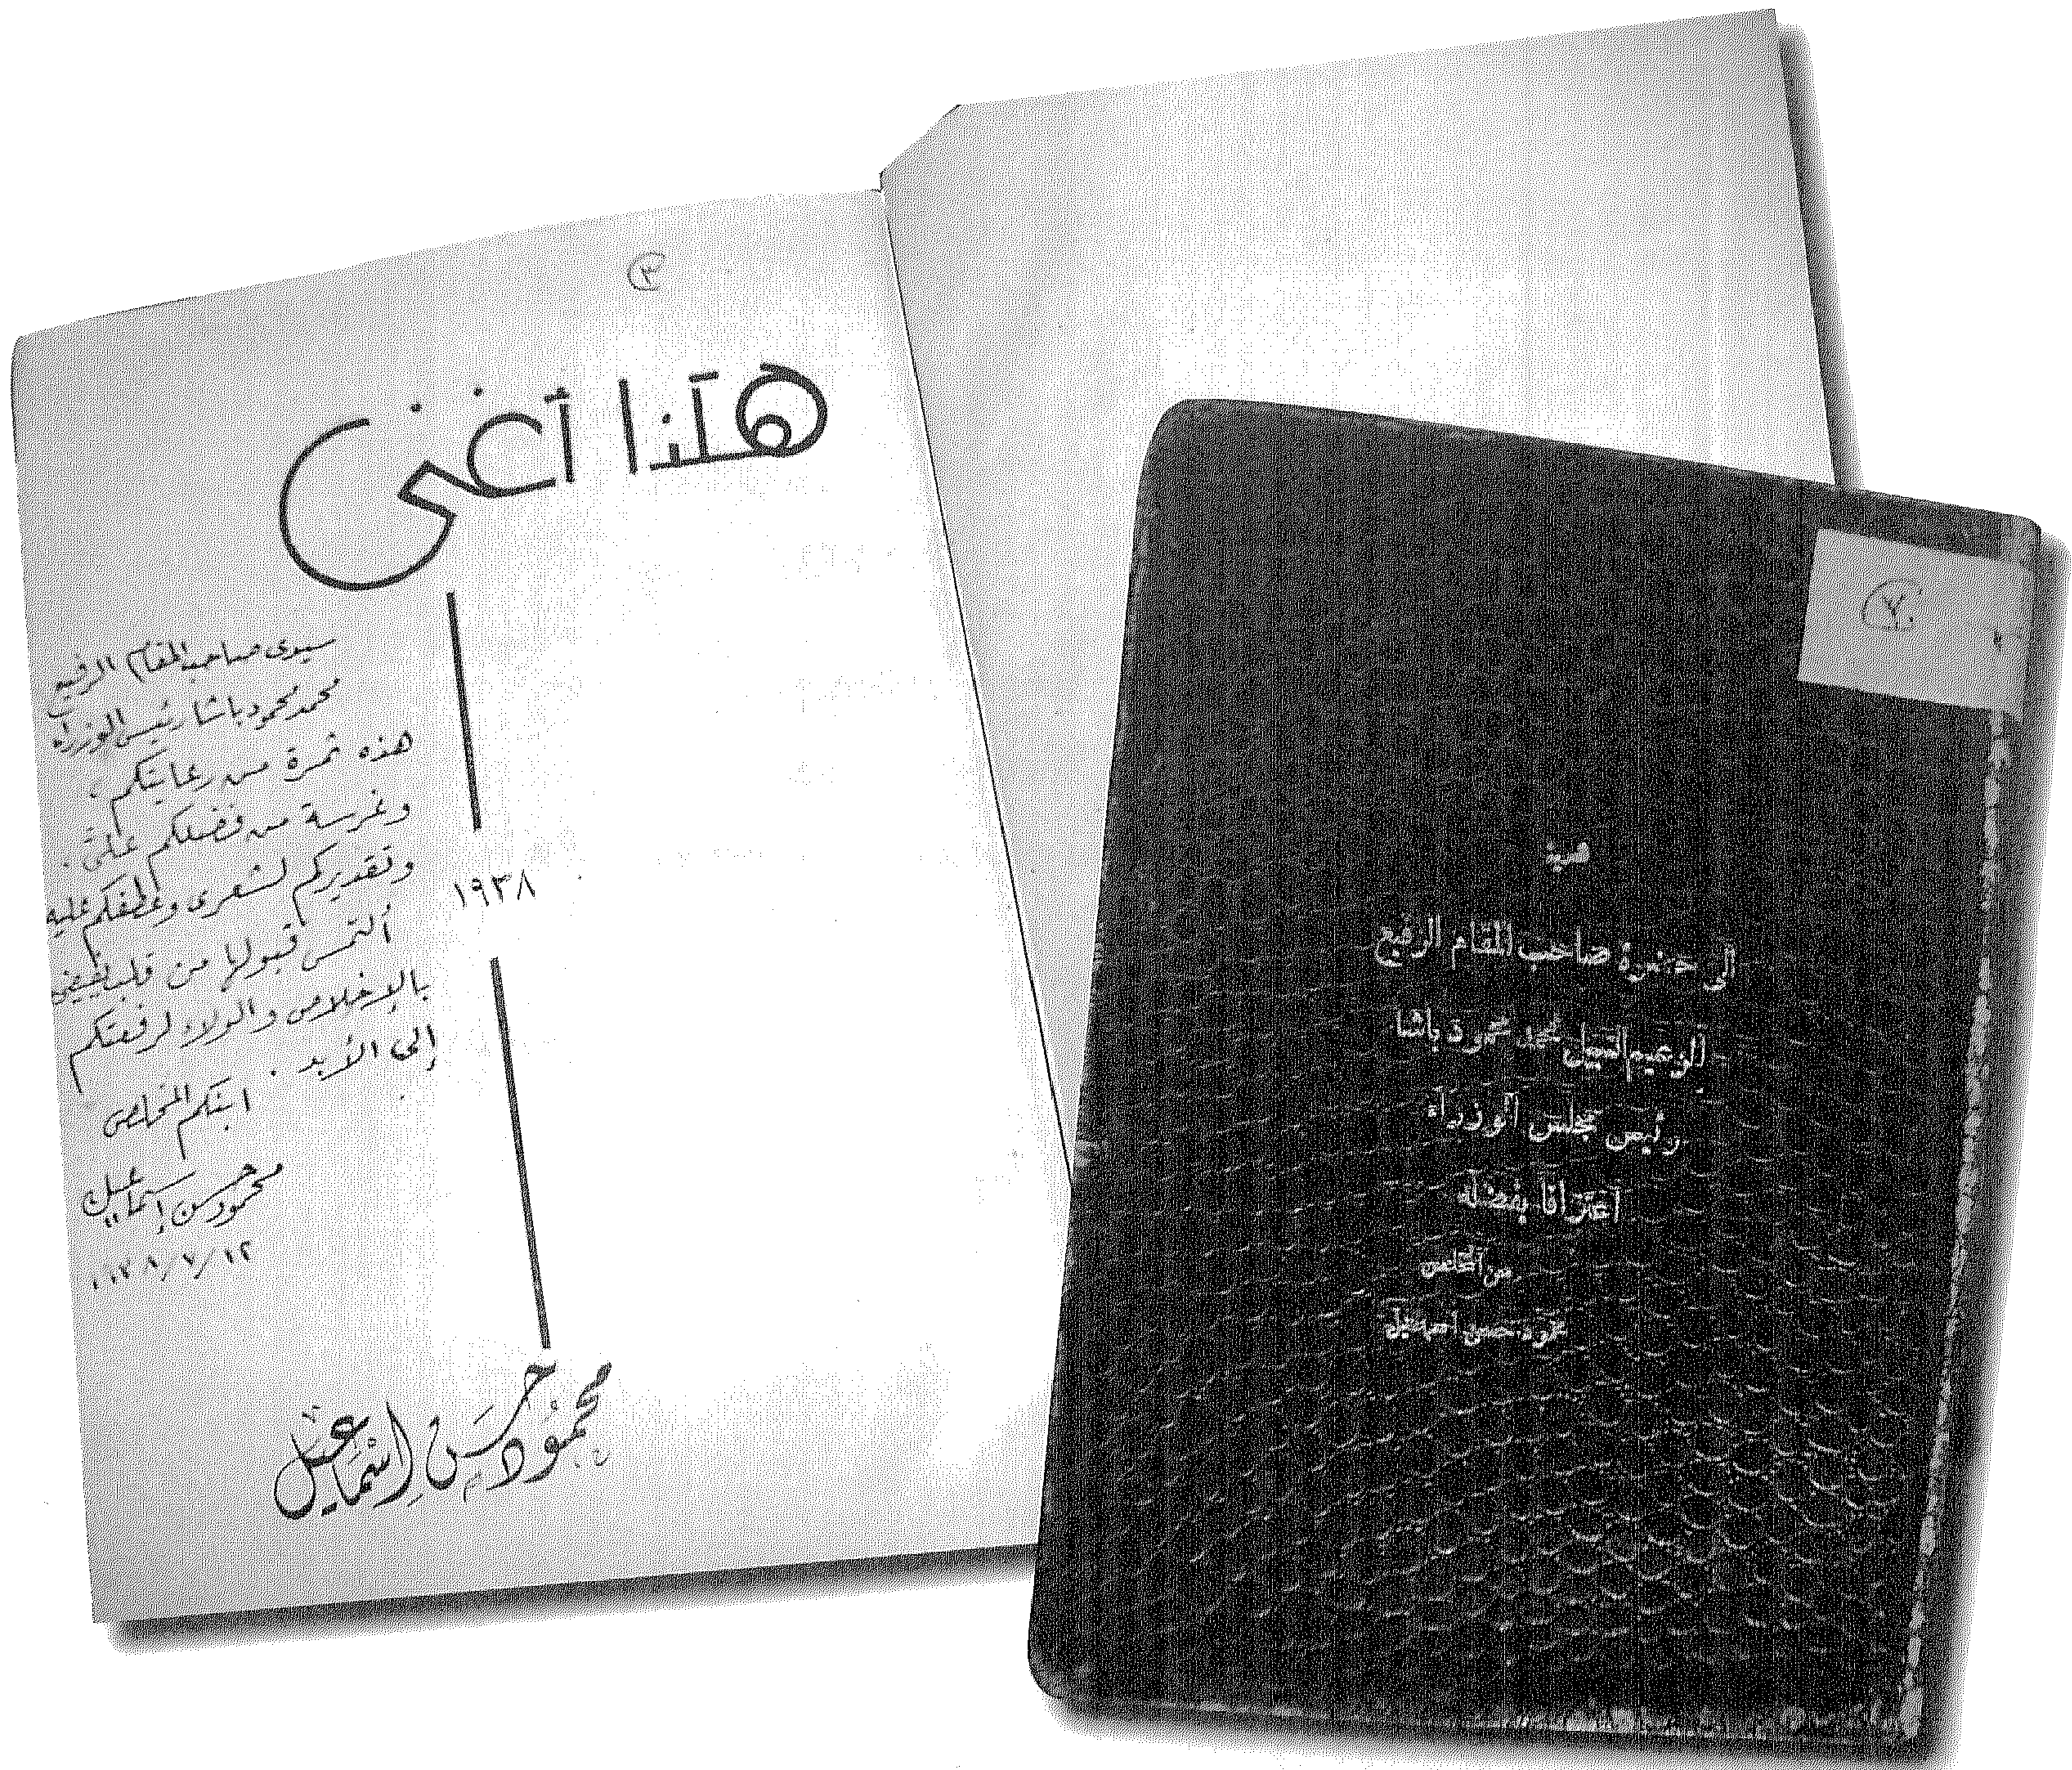 ٣
هكذا أغنى
سيدى صاحب المقام الرفيع
محمد محمود باشا رئيس الوزراء
هذه ثمرة من رعايتكم .
وغرسة من فضلكم علىَّ .
وتقديركم لشعرى وعطفكم عليه
ألتمس قبولها من قلب يفيض
بالإخلاص والولاء لرفعتكم
إلى الأبد .
ابنكم المخلص
محمود حسن إسماعيل
١٩٣٨
محمود حسن إسماعيل
٧
هدية
الى حضرة صاحب المقام الرفيع
الزعيم النبيل محمد محمود باشا
رئيس مجلس الوزراء
اعترافا بفضله
من المخلص
محمود حسن اسماعيل